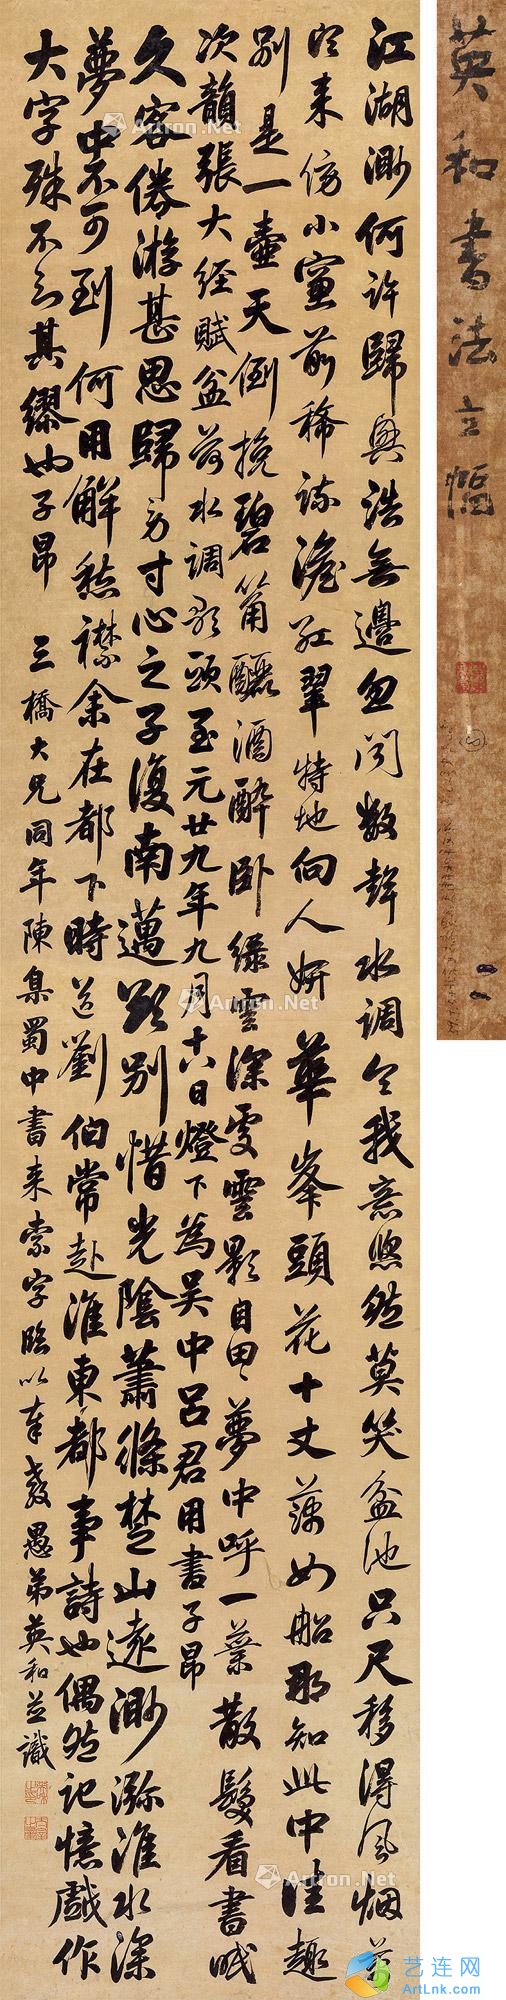 江湖渺何許歸興浩無邊忽聞數聲水調令我意悠然莫笑盆池咫尺移得風烟萬
頃來傍小窗前稀疎澹紅翠特地向人妍華峯頭花十丈藕如船那知此中佳趣
別是一壺天倒挽碧筩釃酒醉臥綠雲深處雲影自田田夢中呼一葉散髮看書眠
次韻張大經賦盆荷水調歌頭至元廿九年九月十六日燈下為吳中呂君用書子昂
久客倦游甚思歸方寸心之子復南邁欲別惜光陰蕭條楚山遠渺瀰淮水深
夢中不可到何用解愁襟余在都下時送劉伯常赴淮東都事詩也偶然記憶戲作
大字殊不知其繆也子昂
三橋大兄同年陳集蜀中書來索字臨以奉教愚弟英和並識
英和書法立幅
Artron.Net
艺连网
YiLianNet.Com